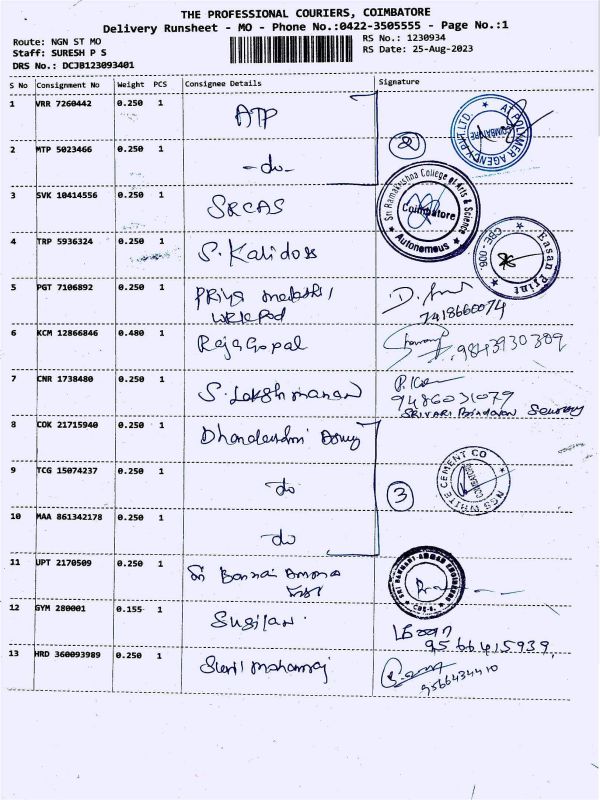 THE PROFESSIONAL COURIERS, COIMBATORE
Delivery Runsheet - MO - Phone No.:0422-3505555 - Page No.:1
Route: NGN ST MO
Staff: SURESH P S
DRS No.: DCJB123093401
RS No.: 1230934
RS Date: 25-Aug-2023
S No Consignment No Weight PCS Consignee Details Signature
1 VRR 7260442 0.250 1 ATP
AT POLYMER AGENCY PVT. LTD. COIMBATORE
2 MTP 5023466 0.250 1 -do- 2
3 SVK 10414556 0.250 1 SRCAS
Sri Ramakrishna College of Arts & Science Coimbatore Autonomous
4 TRP 5936324 0.250 1 S. Kalidoss
Print CBE - 006.
5 PGT 7106892 0.250 1 Priya
7418660074
6 KCM 12866846 0.480 1 RajaGopal
9843930309
7 CNR 1738480 0.250 1 S. Lakshmanan
9486031079
8 COK 21715940 0.250 1
9 TCG 15074237 0.250 1 do 3
NGS WHITE CEMENT CO COIMBATORE
10 MAA 861342178 0.250 1 -do
11 UPT 2170509 0.250 1 Sri
12 GYM 280001 0.155 1 Sugilan
9566415939
13 HRD 360093989 0.250 1 Sunil
9566434410